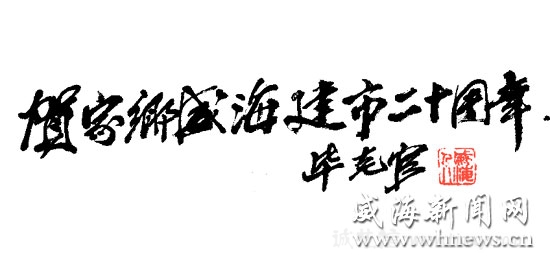 贺家乡威海建市二十周年.
毕克官
威海新闻网
www.whnews.cn